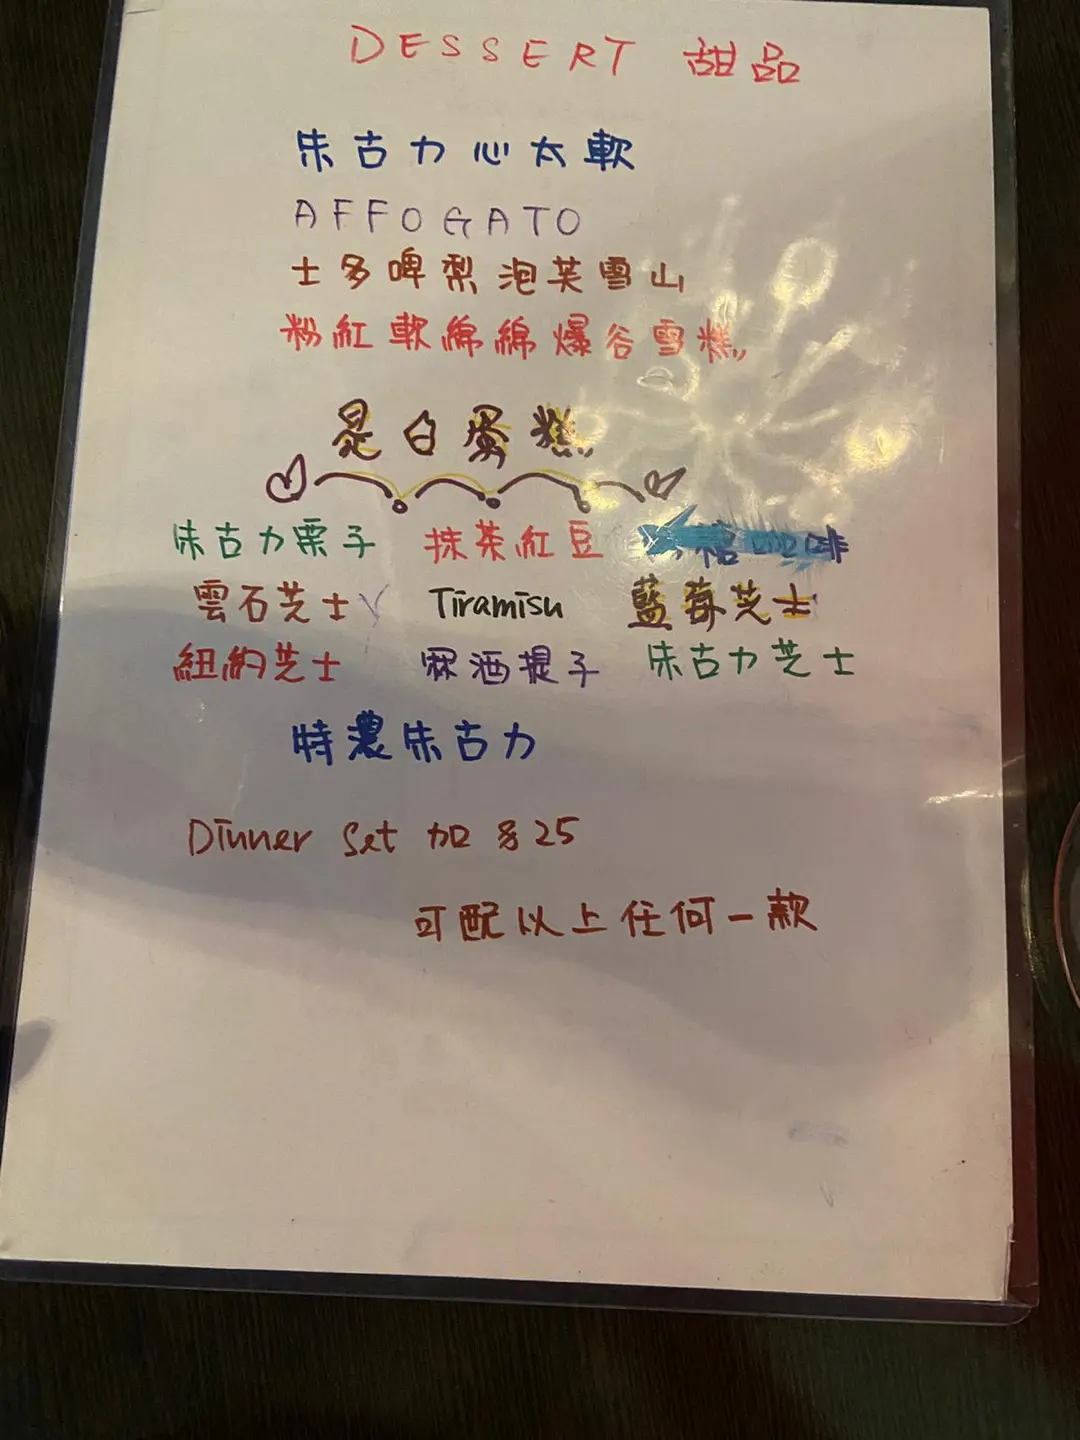 DESSERT 甜品
朱古力心太軟
AFFOGATO
士多啤梨泡芙雪山
粉紅軟綿綿爆谷雪糕
是白蛋糕
朱古力栗子 抹茶紅豆 糖咖啡
雲石芝士 Tiramisu 藍莓芝士
紐約芝士 冧酒提子 朱古力芝士
特濃朱古力
Dinner Set 加 $25
可配以上任何一款